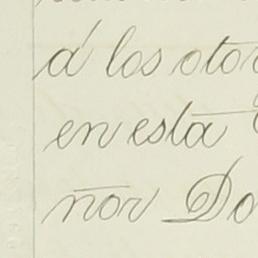 á los oto
en esta
nor Do